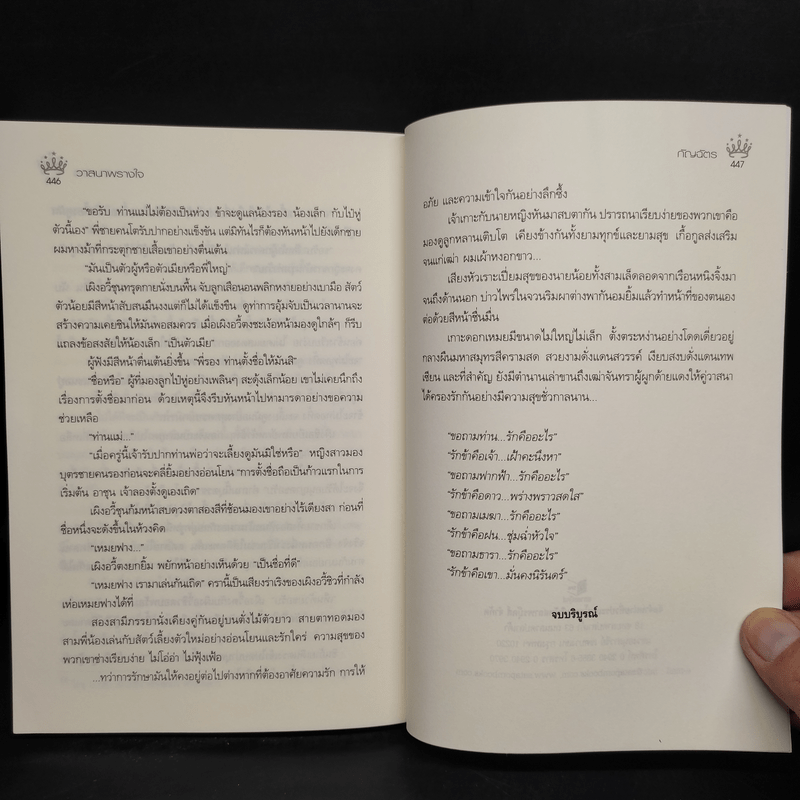 446 วาสนาพรางใจ
"ขอรับ ท่านแม่ไม่ต้องเป็นห่วง ข้าจะดูแลน้องรอง น้องเล็ก กับไป๋หู่
ตัวนี้เอง" พี่ชายคนโตรับปากอย่างแข็งขัน แต่มิทันไรก็ต้องหันหน้าไปยังเด็กชาย
ผมหางม้าที่กระตุกชายเสื้อเขาอย่างตื่นเต้น
"มันเป็นตัวผู้หรือตัวเมียหรือพี่ใหญ่"
เผิงอวี้ชุนทรุดกายนั่งบนพื้น จับลูกเสือนอนพลิกหงายอย่างเบามือ สัตว์
ตัวน้อยมีสีหน้าสับสนมึนงงแต่ก็ไม่ได้แข็งขืน ดูท่าการอุ้มจับเป็นเวลานานจะ
สร้างความเคยชินให้มันพอสมควร เมื่อเผิงอวี้ตงชะเง้อหน้ามองดูใกล้ๆ ก็รีบ
แถลงข้อสงสัยให้น้องเล็ก "เป็นตัวเมีย"
ผู้ฟังมีสีหน้าตื่นเต้นยิ่งขึ้น "พี่รอง ท่านตั้งชื่อให้มันสิ"
"ชื่อหรือ" ผู้ที่มองลูกไป๋หู่อย่างเพลินๆ สะดุ้งเล็กน้อย เขาไม่เคยนึกถึง
เรื่องการตั้งชื่อมาก่อน ด้วยเหตุนี้จึงรีบหันหน้าไปหามารดาอย่างขอความ
ช่วยเหลือ
"ท่านแม่..."
"เมื่อครู่นี้เจ้ารับปากท่านพ่อว่าจะเลี้ยงดูมันมิใช่หรือ" หญิงสาวมอง
บุตรชายคนรองก่อนจะคลี่ยิ้มอย่างอ่อนโยน "การตั้งชื่อถือเป็นก้าวแรกในการ
เริ่มต้น อาชุน เจ้าลองตั้งดูเองเถิด"
เผิงอวี้ชุนก้มหน้าสบดวงตาสองสีที่ช้อนมองเขาอย่างไร้เดียงสา ก่อนที่
ชื่อหนึ่งจะดังขึ้นในห้วงคิด
"เหมยฟาง..."
เผิงอวี้ตงยกยิ้ม พยักหน้าอย่างเห็นด้วย "เป็นชื่อที่ดี"
"เหมยฟาง เรามาเล่นกันเถิด" ครานี้เป็นเสียงร่าเริงของเผิงอวี้ชิวที่กำลัง
เห่อเหมยฟางได้ที่
สองสามีภรรยานั่งเคียงคู่กันอยู่บนตั่งไม้ตัวยาว สายตาทอดมอง
สามพี่น้องเล่นกับสัตว์เลี้ยงตัวใหม่อย่างอ่อนโยนและรักใคร่ ความสุขของ
พวกเขาช่างเรียบง่าย ไม่โอ่อ่า ไม่ฟุ้งเฟ้อ
...ทว่าการรักษามันให้คงอยู่ต่อไปต่างหากที่ต้องอาศัยความรัก การให้
กัญฉัตร 447
อภัย และความเข้าใจกันอย่างลึกซึ้ง
เจ้าเกาะกับนายหญิงหันมาสบตากัน ปรารถนาเรียบง่ายของพวกเขาคือ
มองดูลูกหลานเติบโต เคียงข้างกันทั้งยามทุกข์และยามสุข เกื้อกูลส่งเสริม
จนแก่เฒ่า ผมเผ้าหงอกขาว...
เสียงหัวเราะเปี่ยมสุขของนายน้อยทั้งสามเล็ดลอดจากเรือนหนิงจิ้งมา
จนถึงด้านนอก บ่าวไพร่ในจวนริมผาต่างพากันอมยิ้มแล้วทำหน้าที่ของตนเอง
ต่อด้วยสีหน้าชื่นมื่น
เกาะดอกเหมยมีขนาดไม่ใหญ่ไม่เล็ก ตั้งตระหง่านอย่างโดดเดี่ยวอยู่
กลางผืนมหาสมุทรสีครามสด สวยงามดั่งแดนสวรรค์ เงียบสงบดั่งแดนเทพ
เซียน และที่สำคัญ ยังมีตำนานเล่าขานถึงเฒ่าจันทราผู้ผูกด้ายแดงให้คู่วาสนา
ได้ครองรักกันอย่างมีความสุขชั่วกาลนาน...
"ขอถามท่าน...รักคืออะไร"
"รักข้าคือเจ้า...เฝ้าคะนึงหา"
"ขอถามฟากฟ้า...รักคืออะไร"
"รักข้าคือดาว...พร่างพราวสดใส"
"ขอถามเมฆา...รักคืออะไร"
"รักข้าคือฝน...ชุ่มฉ่ำหัวใจ"
"ขอถามธารา...รักคืออะไร"
"รักข้าคือเขา...มั่นคงนิรันดร์"
จบบริบูรณ์